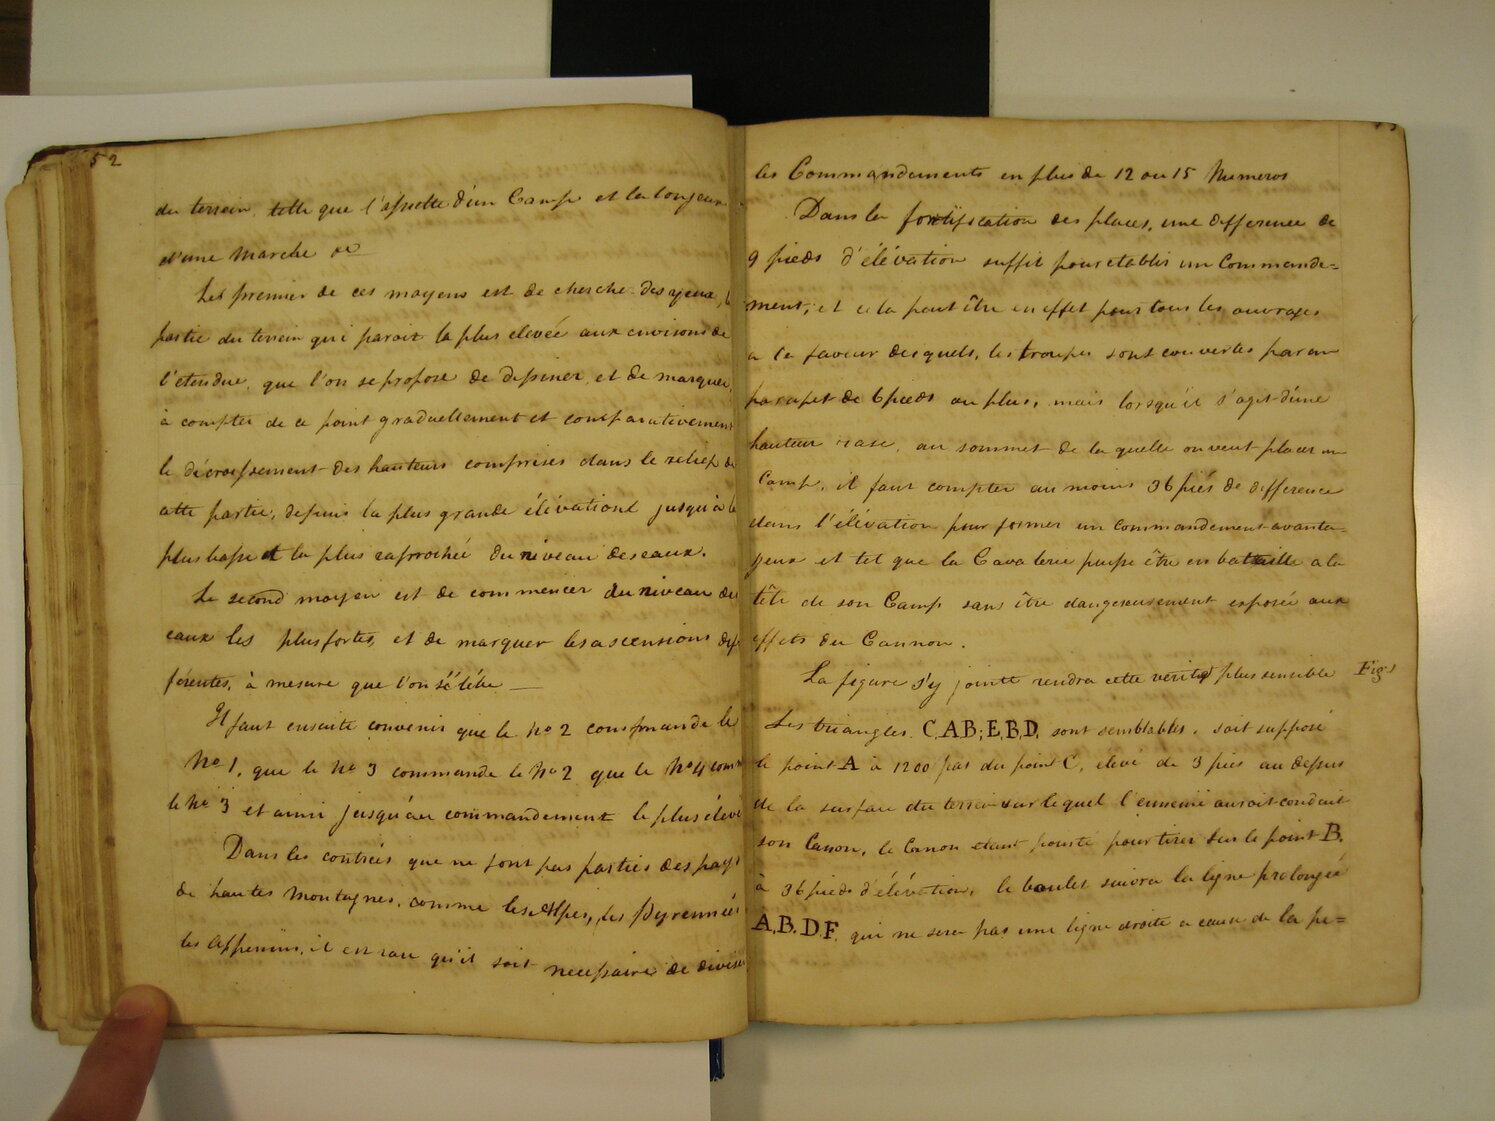 52
du terrein, telle que l'assiette d'un Camp et la longeur
d'une Marche &c
Les premier de ces moyens est de cherche des yeux, la
partie du terrein qui paroit la plus elevée aux environs de
l'etendue, que l'on se propose de dessiner, et de marquer,
à compter de ce point graduellement et comparativement
le décroissement des hauteurs comprises dans le relief de
cette partie, depuis la plus grande élévationt jusqu'à la
plus basse et la plus rasprochée du niveau des eaux.
Le second moyen est de commencer du niveau des
eaux les plus fortes, et de marquer les ascensions dif
ferentes, à mesure que l'on s'élève —
Il faut ensuite convenir que le No 2 commande le
No 1, que le No 3 commande le No 2 que le No 4 comm
le No 3 et ainsi jusqu'au commandement le plus élevé
Dans les contrées que ne font pas parties des pays
de hautes Montagnes, comme les Alpes, les Pyrennées
les Appenins, il est rare qu'il soit necessaire de diviser
les Commandements en plus de 12 ou 15 Numeros
Dans la fortification des places, une difference de
9 pieds d'élévation suffit pour etablir un Commande=
ment, et cela peut être en effet pour tous les ouvrages
a la faveur desquels, les troupes sont couvertes par un
parapet de 6 pieds ou plus, mais lorsqu'il s'agit d'une
hauteur rase, au sommet de la quelle on veut placer un
Camp, il faut compter au moins 36 piés de difference
dans l'élévation pour former un commandement avanta-
geux et tel que la Cavalerie puisse être en bataille a la
tête de son Camp sans être dangereusement exposée aux
effets du Cannon.
La figure s'y jointe rendra cette verité plus sensible
Fig 1
Les triangles C,A,B; E,B,D, sont semblables, soit supposé
le point A à 1200 pas du point C, élevé de 3 piés au dessus
de la surface du terrein sur lequel l'ennemi auroit conduit
son Canon, le Canon etant pointé pour tirer sur le point B,
à 36 pieds d'élévation, le boulet suivra la ligne prolongée
A,B,D,F, qui ne sera pas une ligne droite a cause de la pe=